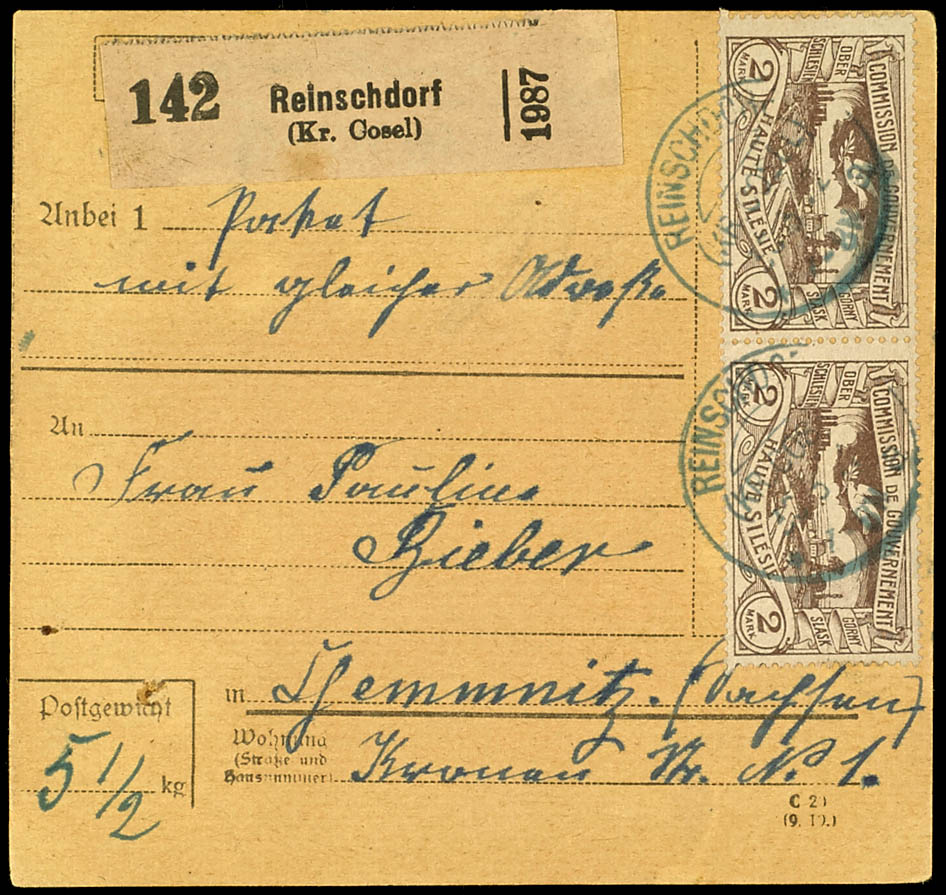 142 Reinschdorf
(Kr. Cosel)
1987
Anbei 1 Paket
mit gleicher Adresse
An
Frau Pauline
Bieber
in Chemmnitz. (Sachsen)
Wohnung
(Straße und
Hausnummer)
Kronen Str. N 1.
Postgewicht
5 1/2 kg
C 20
(9. 19.)
COMMISSION DE GOUVERNEMENT
OBER
SCHLESIEN
HAUTE SILESIE
GORNY
ŚLĄSK
2
MARK
2
MARK
REINSCHDORF
COMMISSION DE GOUVERNEMENT
OBER
SCHLESIEN
HAUTE SILESIE
GORNY
ŚLĄSK
2
MARK
2
MARK
REINSCHDOR